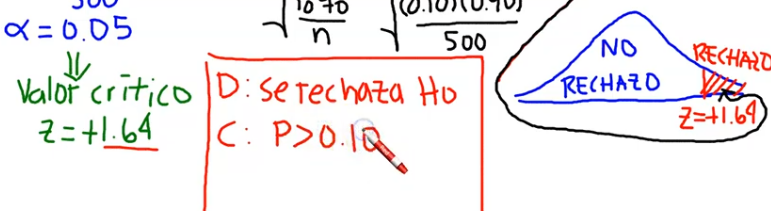 500
α = 0.05
Valor crítico
z = +1.64
n
(0.10)(0.90)
500
D: Se rechaza Ho
C: P > 0.10
NO
RECHAZO
RECHAZO
Z=+1.64